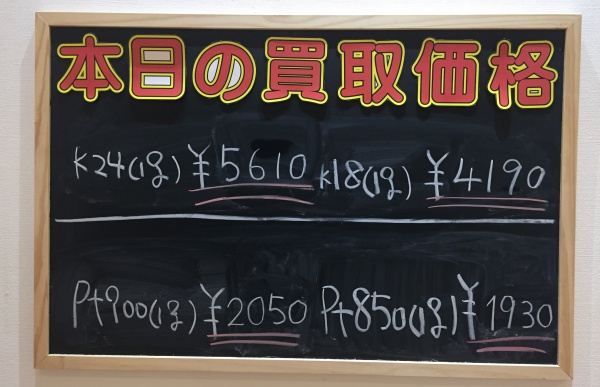 本日の買取価格
K24(1g) ¥5610 K18(1g) ¥4190
Pt900(1g) ¥2050 Pt850(1g) ¥1930